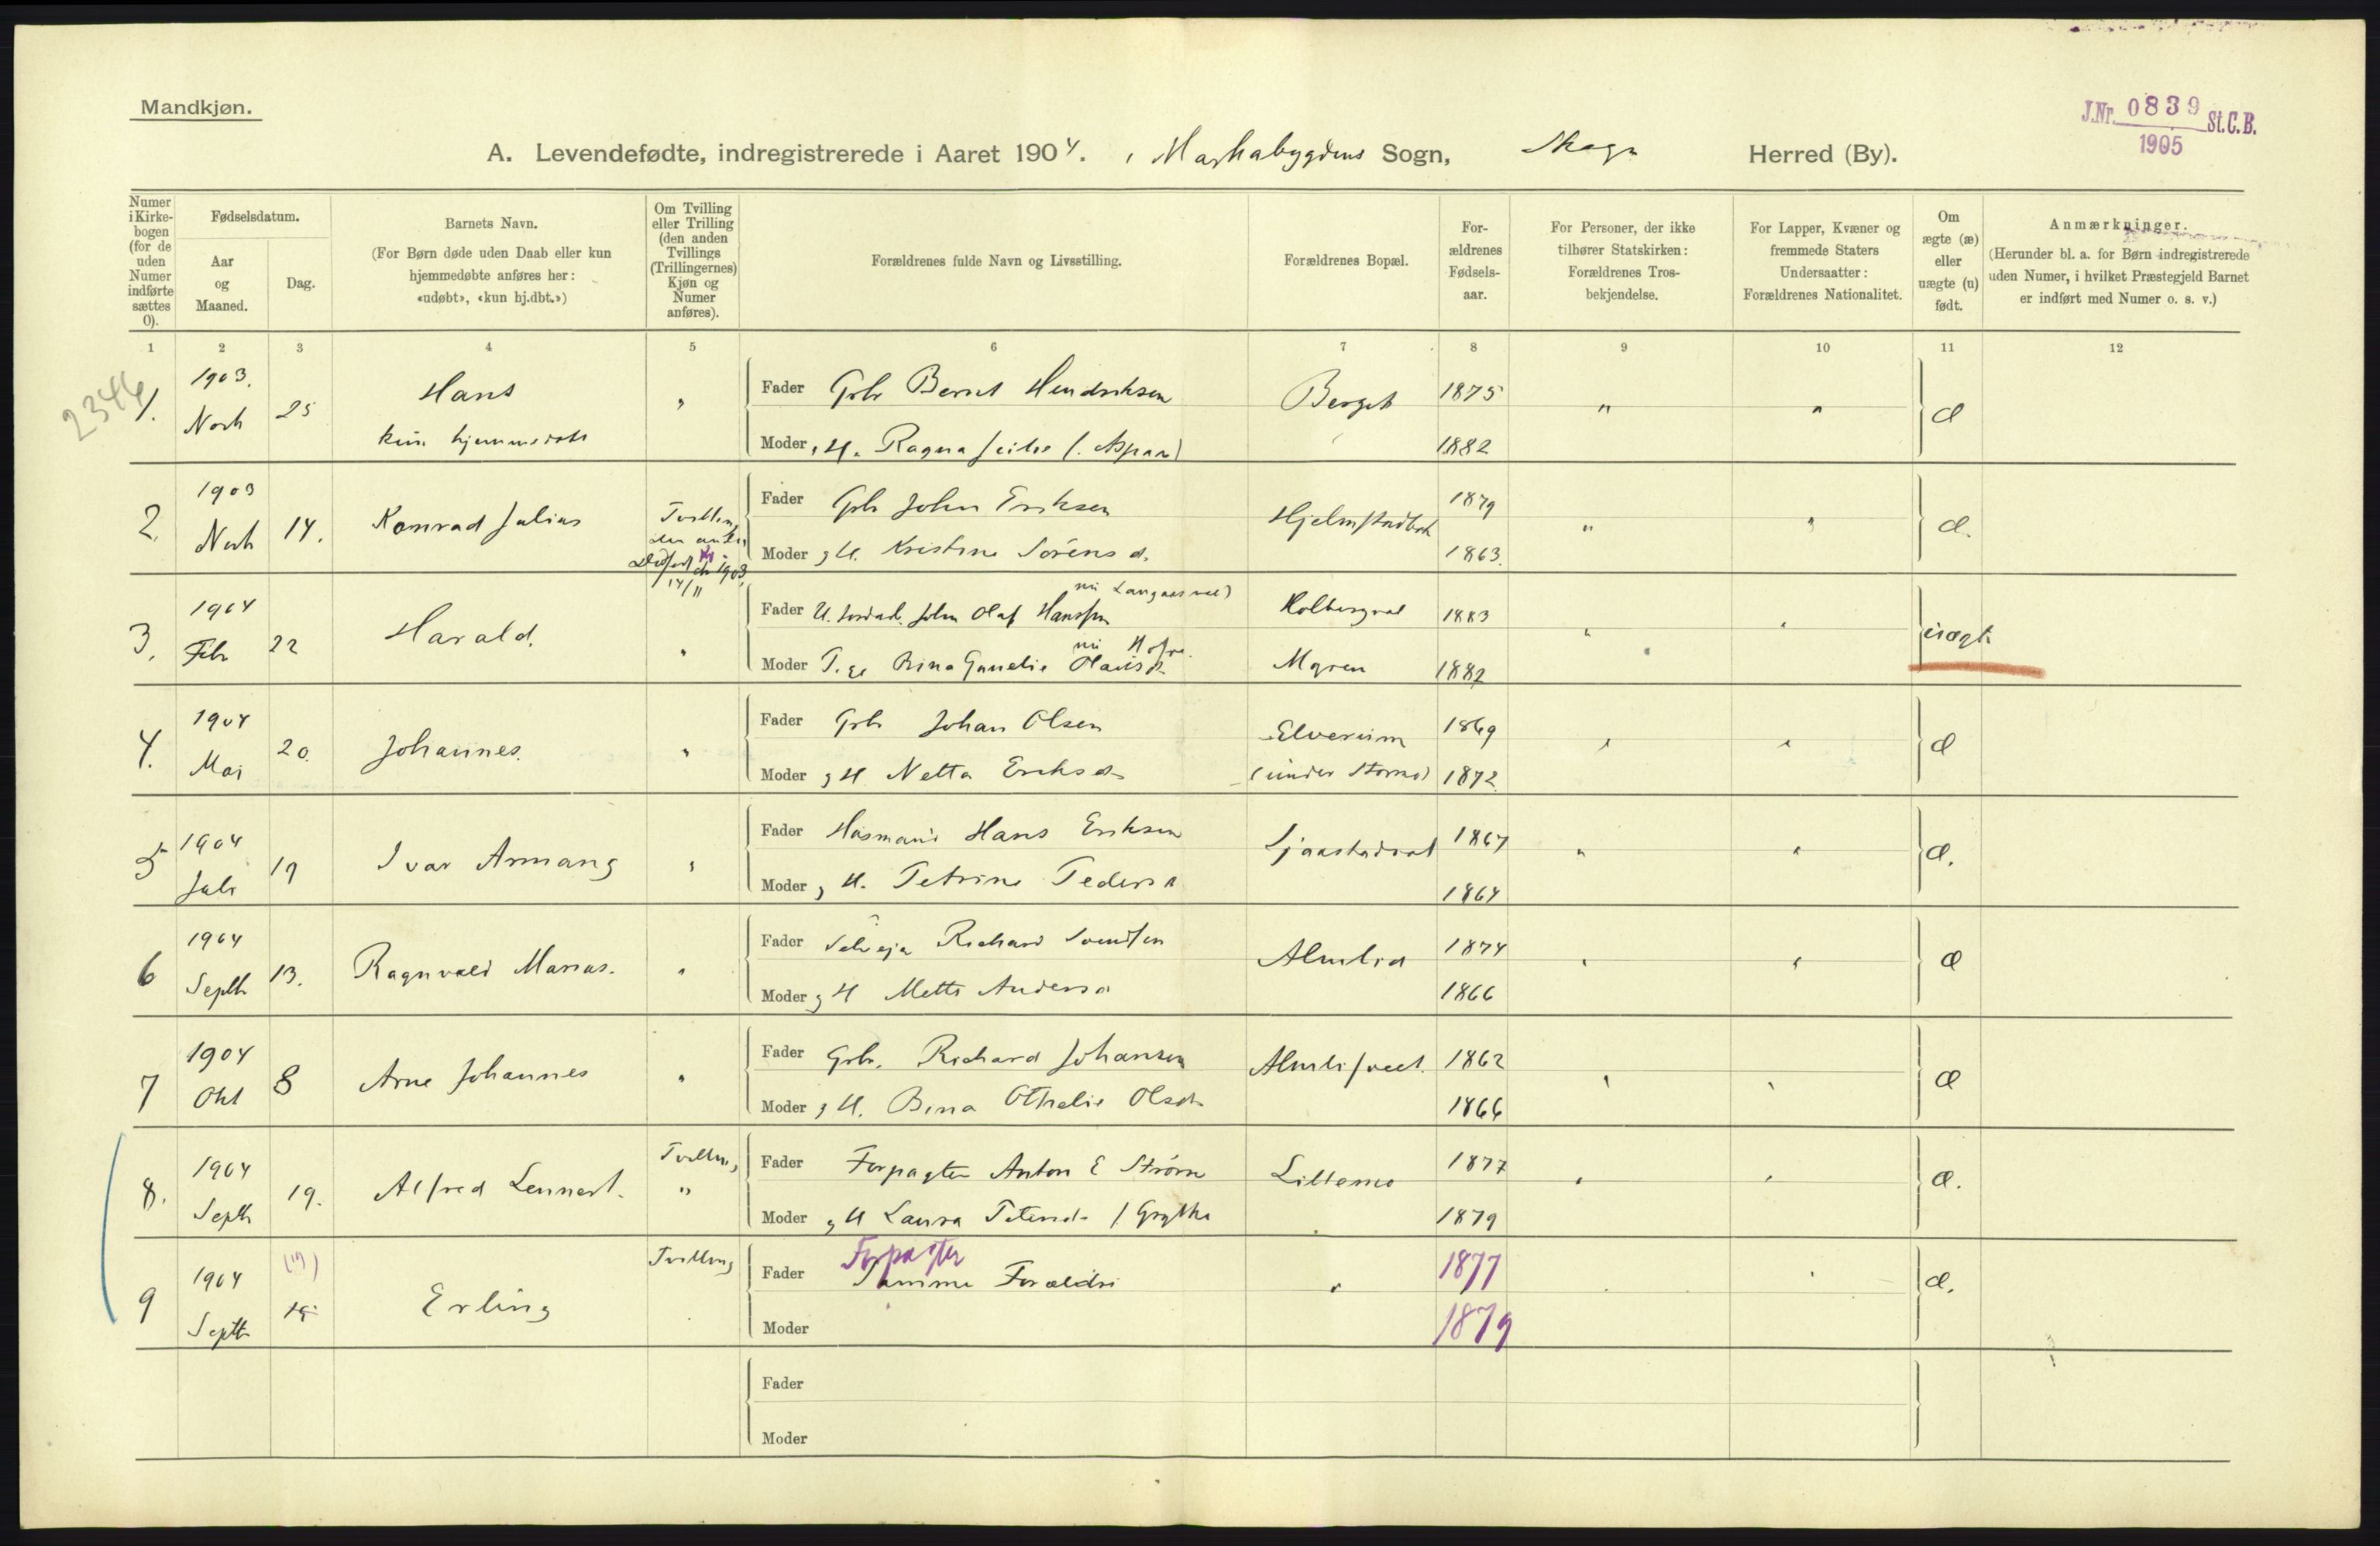 Mandkjøn.
J.Nr. 0839 St.C.B.
1905
A. Levendefødte, indregistrerede i Aaret 1904. i Markabygdens Sogn, Skogn Herred (By).
Numer i Kirkebogen (for de uden Numer indførte sættes 0).
Fødselsdatum.
Aar og Maaned.
Dag.
Barnets Navn.
(For Børn døde uden Daab eller kun hjemmedøbte anføres her: «udøbt», «kun hj.dbt.»)
Om Tvilling eller Trilling (den anden Tvillings (Trillingernes) Kjøn og Numer anføres).
Forældrenes fulde Navn og Livsstilling.
Forældrenes Bopæl.
Forældrenes Fødselsaar.
For Personer, der ikke tilhører Statskirken: Forældrenes Trosbekjendelse.
For Lapper, Kvæner og fremmede Staters Undersaatter: Forældrenes Nationalitet.
Om ægte (æ) eller uægte (u) født.
Anmærkninger.
(Herunder bl. a. for Børn indregistrerede uden Numer, i hvilket Præstegjeld Barnet er indført med Numer o. s. v.)
1 2 3 4 5 6 7 8 9 10 11 12
2346
1. 1903. Novb 25 Hans " Fader Gbr Bernt Hendriksen Berget 1875 " " æ
kun hjemmedøbt Moder , H. Ragna 1882
2. 1903 Novb 14. Konrad Julius Tvilling Fader Gbr John Eriksen 1879 " " æ.
den anden Dødfødt 14/11 1903 Moder g H. Kristine Sørens d. 1863.
3. 1904 Febr 22 Harald. " Fader U. John Olaf Hanssen 1883 " " uægte
Moder P. ge Olausd 1882
4. 1904 Mai 20. Johannes. " Fader Gbr Johan Olsen Elverum 1869 " " æ
Moder g H Netta Eriksd (under Stormo) 1872
5 1904 Juli 17 Ivar Armang " Fader Husmand Hans Eriksen 1867 " " æ.
Moder g H. Petrine Pedersd 1864
6 1904 Septb 13. Ragnvald Marias. " Fader Selveja Richard Svendsen Almlid 1874 " " æ
Moder g H Mette Andersd 1866
7 1904 Okt 8 Arne Johannes " Fader Gbr. Richard Johansen 1862 " " æ
Moder g H. Bina Othelie Olsd 1866
8. 1904 Septb 19. Alfred Lennart. Tvilling " Fader Forpagter Anton E Strøm Lillemo 1877 " " æ.
Moder g H Laura Petersd 1879
9 1904 Septb (19) 19. Erling Tvilling Fader Forpagter Samme Forældre " 1877 æ.
Moder 1879
Fader
Moder